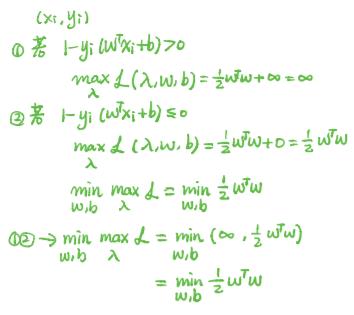 (xᵢ, yᵢ)
① 若 1-yᵢ(wᵀxᵢ+b)>0
max_λ ℒ(λ,w,b)=½wᵀw+∞=∞
② 若 1-yᵢ(wᵀxᵢ+b)≤0
max_λ ℒ(λ,w,b)=½wᵀw+0=½wᵀw
min_{w,b} max_λ ℒ = min_{w,b} ½wᵀw
①②→ min_{w,b} max_λ ℒ = min_{w,b} (∞, ½wᵀw)
= min_{w,b} ½wᵀw